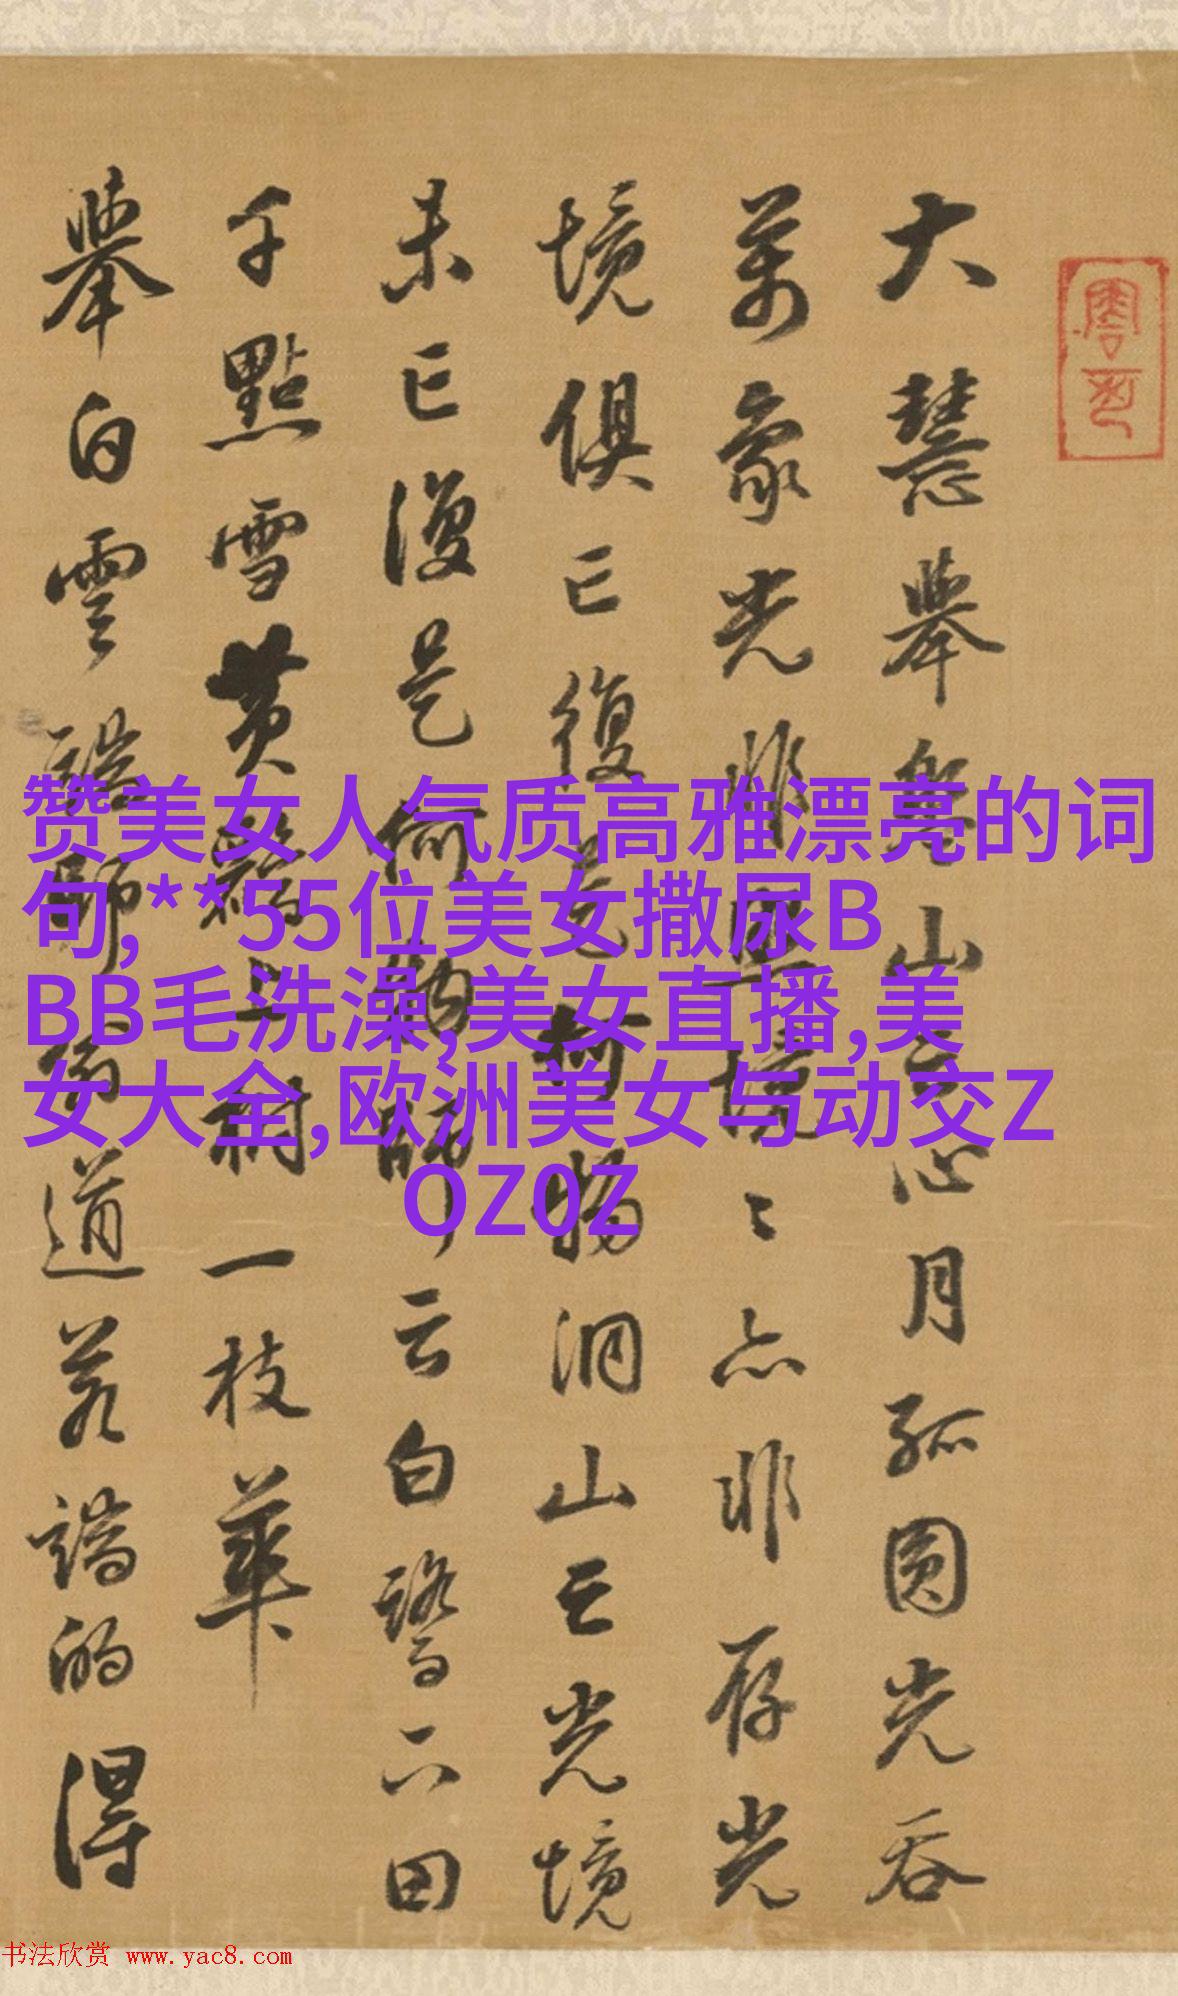 大慧舉盤山云心月孤圓光吞
萬象光非照境〻亦非存光
境俱亡復是何物洞山云光境
未亡復是何物師云白鷺下田
千點雪黄鸝上樹一枝華
舉白雲端師翁道若端的得
赞美女人气质高雅漂亮的词
句,**55位美女撒尿B
BB毛洗澡,美女直播,美
女大全,欧洲美女与动交Z
OZ0Z
书法欣赏 www.yac8.com